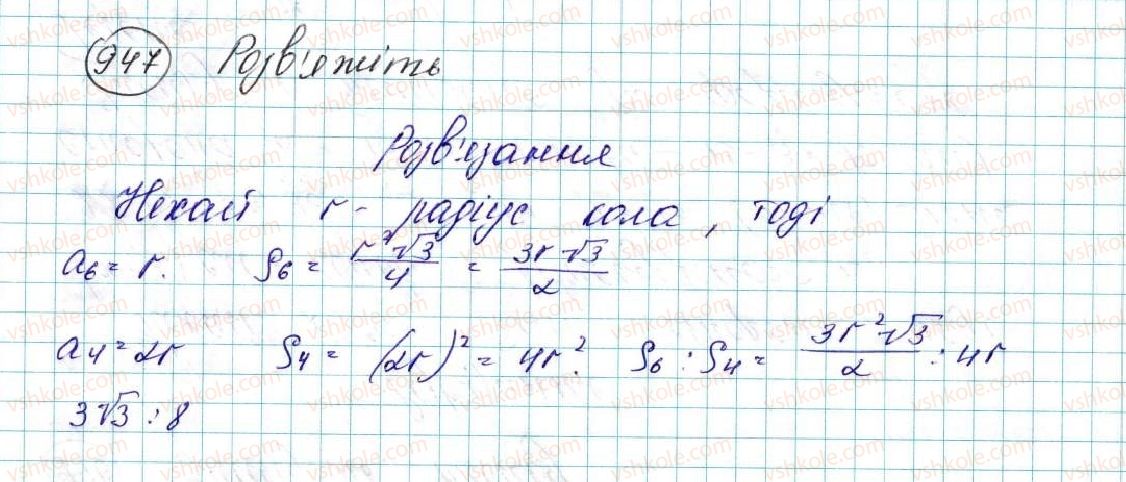 947 Розв'яжіть
Розв'язання
Нехай r - радіус кола, тоді
a₆ = r. S₆ = r²√3/4 = 3r√3/2
a₄ = 2r S₄ = (2r)² = 4r². S₆ : S₄ = 3r²√3/2 : 4r
3√3 : 8